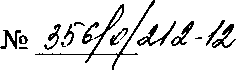 № 356/о/212-12